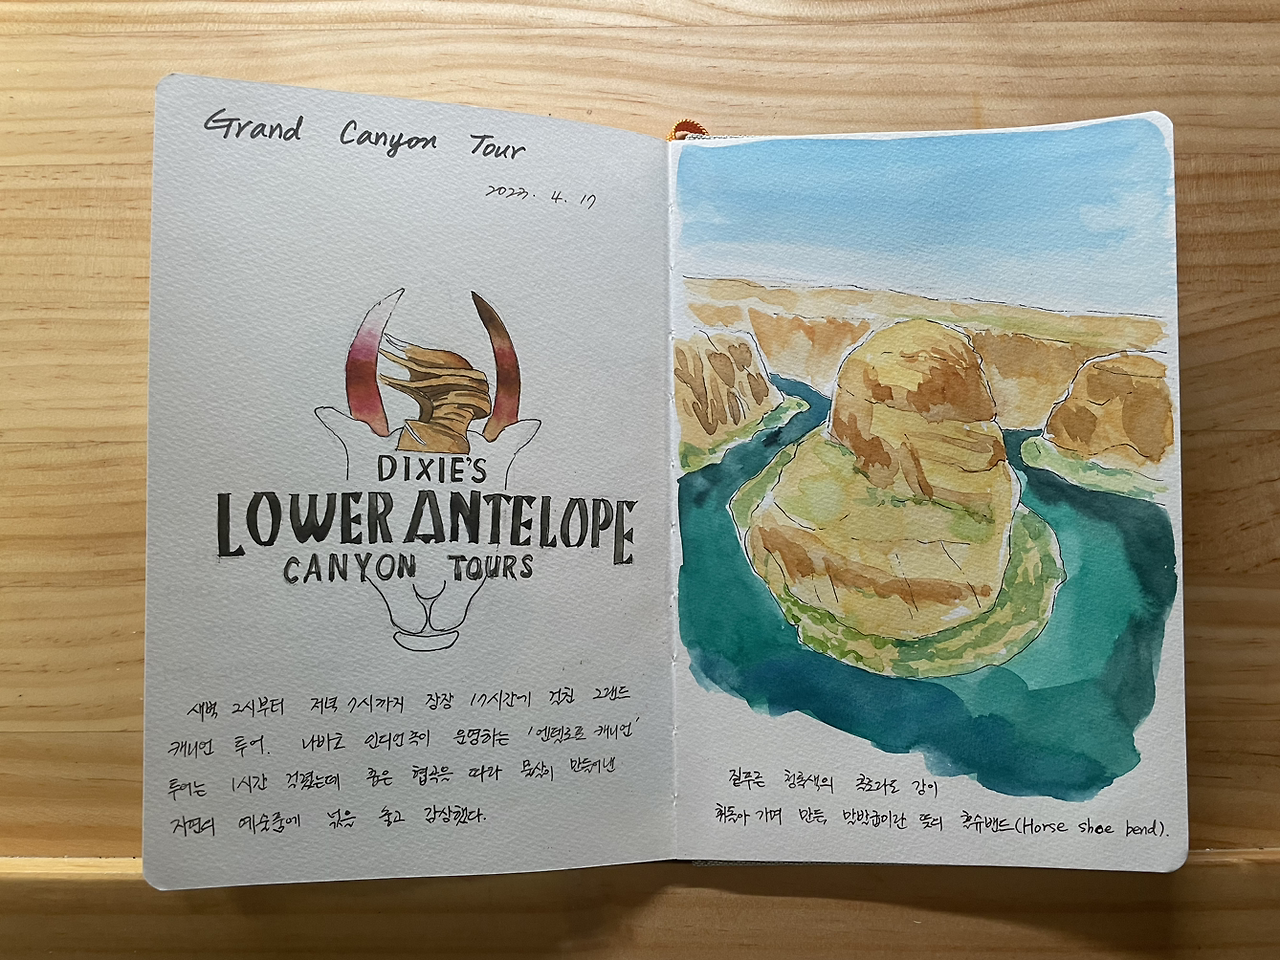 Grand Canyon Tour
2023. 4. 17
DIXIE'S
LOWER ANTELOPE
CANYON TOURS
새벽 2시부터 저녁 7시까지 장장 17시간에 걸친 그랜드
캐니언 투어. 나바호 인디언족이 운영하는 '엔텔로프 캐니언'
투어는 1시간 걸렸는데 좁은 협곡을 따라 물살이 만들어낸
자연의 예술품에 넋을 놓고 감상했다.
짙푸른 청록색의 콜로라도 강이
휘돌아 가며 만든, 말발굽이란 뜻의 홀슈밴드(Horse shoe bend).